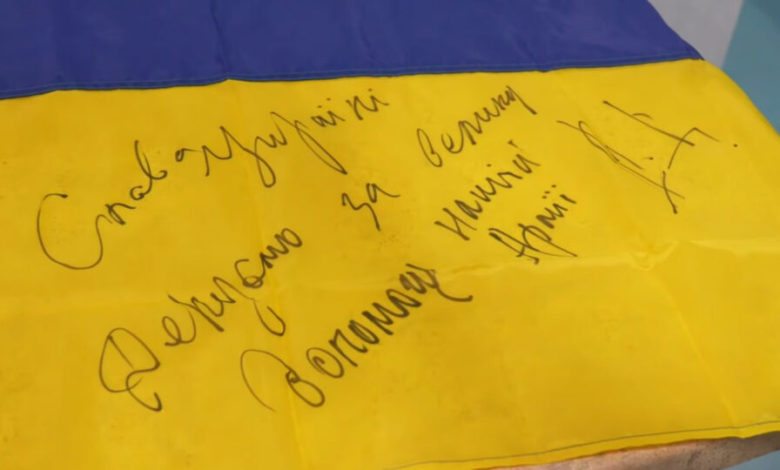 Слава Україні
Дякуємо за велику
Допомогу нашій Армії